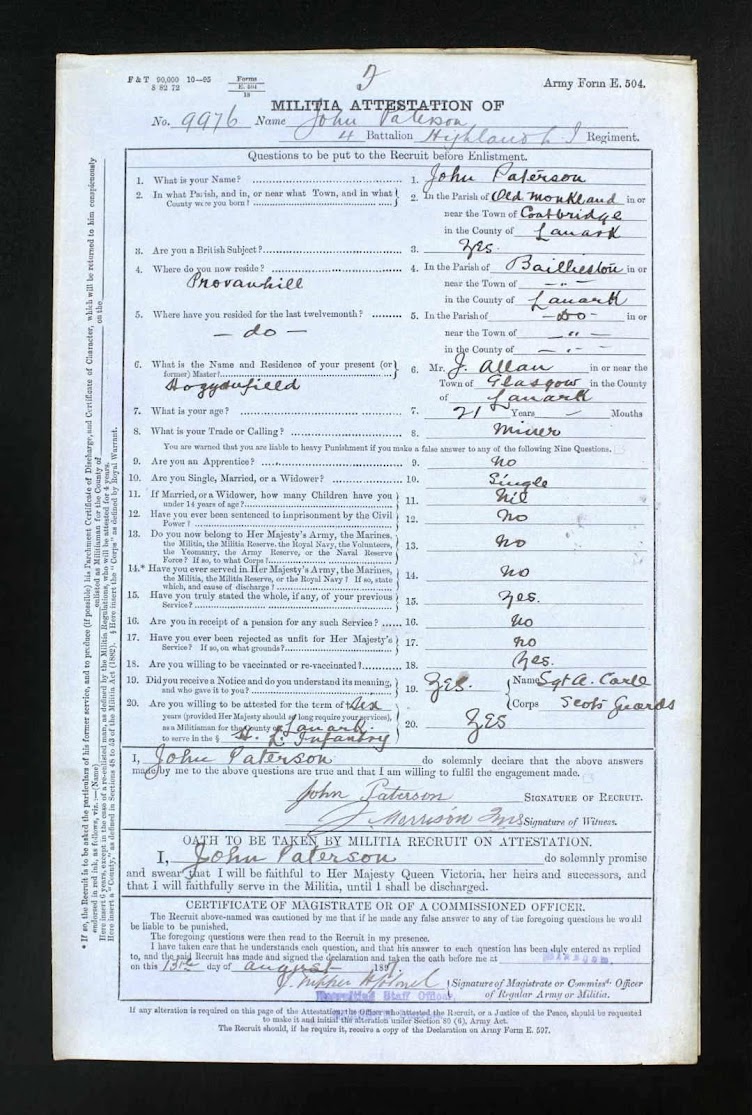 F & T 90,000 10—95
S 82 72
Forms
E. 504
18
Army Form E. 504.
MILITIA ATTESTATION OF
No. 9976 Name John Paterson
4 Battalion Highland L I Regiment.
Questions to be put to the Recruit before Enlistment.
1. What is your Name? 1. John Paterson
2. In what Parish, and in, or near what Town, and in what County were you born? 2. In the Parish of Old Monkland in or
near the Town of Coatbridge
in the County of Lanark
3. Are you a British Subject? 3. Yes.
4. Where do you now reside? 4. In the Parish of Baillieston in or
Provanhill near the Town of — " —
in the County of Lanark
5. Where have you resided for the last twelvemonth? 5. In the Parish of —Do— in or
— do — near the Town of — " —
in the County of — " —
6. What is the Name and Residence of your present (or former) Master? 6. Mr. J. Allan in or near the
Hogganfield Town of Glasgow in the County
of Lanark
7. What is your age? 7. 21 Years — Months
8. What is your Trade or Calling? 8. Miner
You are warned that you are liable to heavy Punishment if you make a false answer to any of the following Nine Questions.
9. Are you an Apprentice? 9. No
10. Are you Single, Married, or a Widower? 10. Single
11. If Married, or a Widower, how many Children have you
under 14 years of age? 11. Nil
12. Have you ever been sentenced to imprisonment by the Civil
Power? 12. No
13. Do you now belong to Her Majesty's Army, the Marines,
the Militia, the Militia Reserve, the Royal Navy, the Volunteers,
the Yeomanry, the Army Reserve, or the Naval Reserve
Force? If so, to what Corps? 13. No
14.* Have you ever served in Her Majesty's Army, the Marines,
the Militia, the Militia Reserve, or the Royal Navy? If so, state
which, and cause of discharge? 14. No
15. Have you truly stated the whole, if any, of your previous
Service? 15. Yes.
16. Are you in receipt of a pension for any such Service? 16. No
17. Have you ever been rejected as unfit for Her Majesty's
Service? If so, on what grounds? 17. No
18. Are you willing to be vaccinated or re-vaccinated? 18. Yes.
19. Did you receive a Notice and do you understand its meaning,
and who gave it to you? 19. Yes. Name Sgt A.
Corps Scots Guards
20. Are you willing to be attested for the term of † Six
years (provided Her Majesty should so long require your services),
as a Militiaman for the county of Lanark
to serve in the § H. L. Infantry 20. Yes
I, John Paterson do solemnly declare that the above answers
made by me to the above questions are true and that I am willing to fulfil the engagement made.
John Paterson SIGNATURE OF RECRUIT.
J. Morrison Signature of Witness.
OATH TO BE TAKEN BY MILITIA RECRUIT ON ATTESTATION.
I, John Paterson do solemnly promise
and swear that I will be faithful to Her Majesty Queen Victoria, her heirs and successors, and
that I will faithfully serve in the Militia, until I shall be discharged.
CERTIFICATE OF MAGISTRATE OR OF A COMMISSIONED OFFICER.
The Recruit above-named was cautioned by me that if he made any false answer to any of the foregoing questions he would
be liable to be punished.
The foregoing questions were then read to the Recruit in my presence.
I have taken care that he understands each question, and that his answer to each question has been duly entered as replied
to, and the said Recruit has made and signed the declaration and taken the oath before me at Glasgow.
on this 13th day of August 189
Signature of Magistrate or Commissd. Officer
of Regular Army or Militia.
Recruiting Staff Officer.
If any alteration is required on this page of the Attestation, the Officer who attested the Recruit, or a Justice of the Peace, should be requested
to make it and initial the alteration under Section 80 (6), Army Act.
The Recruit should, if he require it, receive a copy of the Declaration on Army Form E. 597.
* If so, the Recruit is to be asked the particulars of his former service, and to produce (if possible) his Parchment Certificate of Discharge, and Certificate of Character, which will be returned to him conspicuously
endorsed in red ink, as follows, viz.:—(Name) enlisted as Militiaman for the County of on the
Here insert 6 years, except in the case of a re-enlisted man, as defined by the Militia Regulations, who will be attested for 4 years.
Here insert a "County," as defined in Sections 48 to 53 of the Militia Act (1882). § Here insert the "Corps" as defined by Royal Warrant.